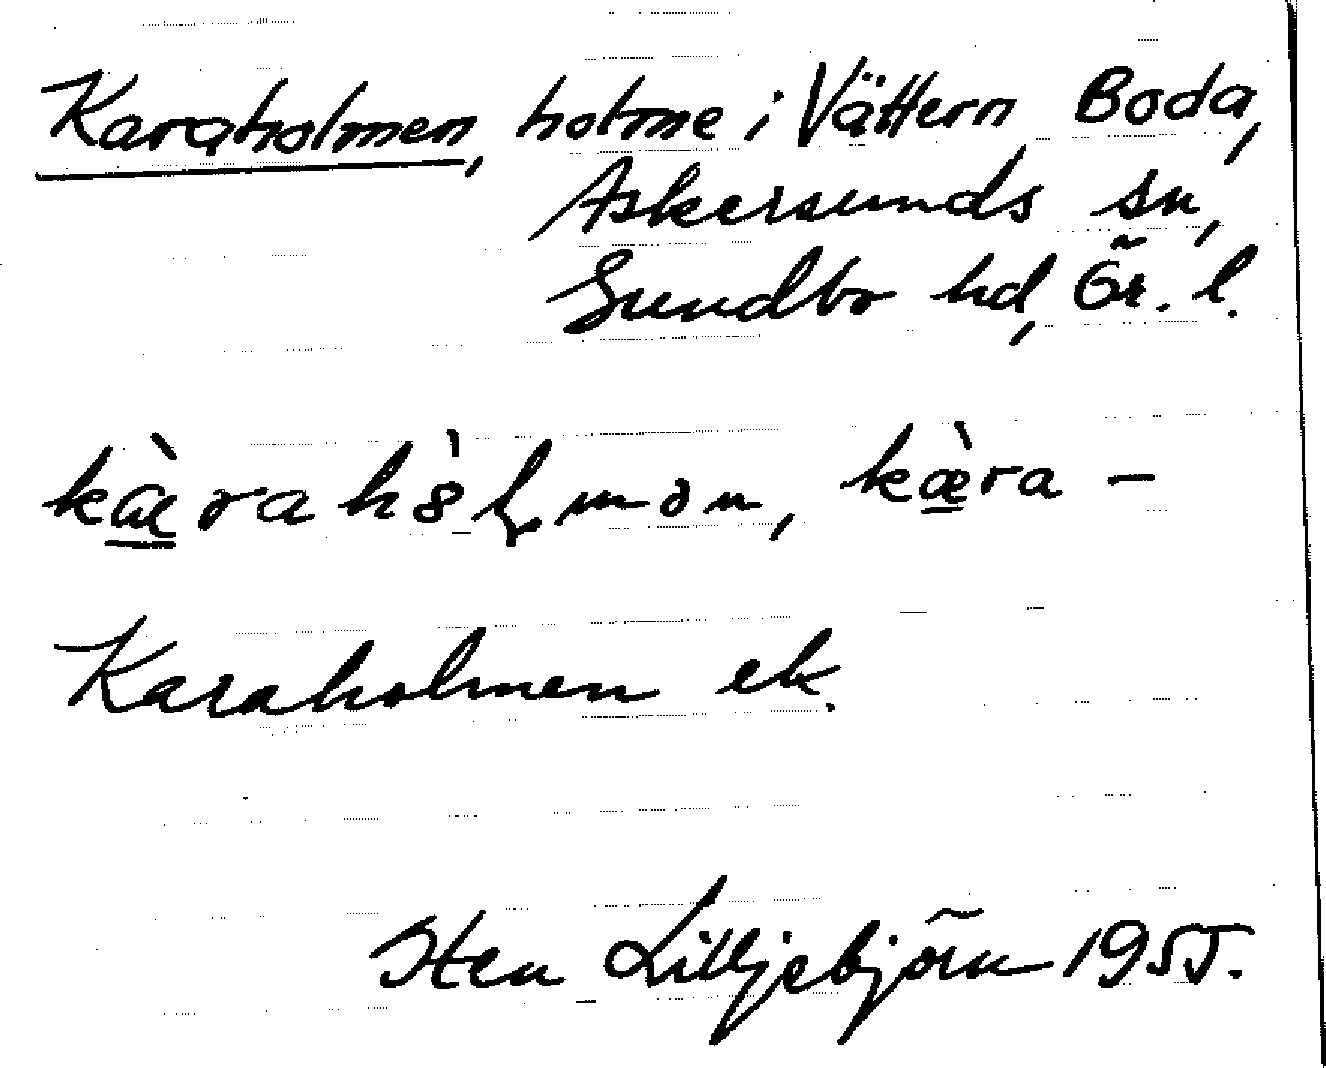 Karaholmen, holme i Vättern, Boda,
Askersunds sn,
Sundbo hd, Ör. l.
kæ̀rahòlmən, kæ̀ra –
Karaholmen ek.
Sten Lilljebjörn 1955.